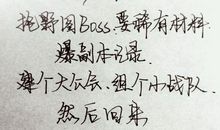 挖野图Boss.要稀有材料.
爆副本记录.
建个大公会.组个小战队.
然后回来